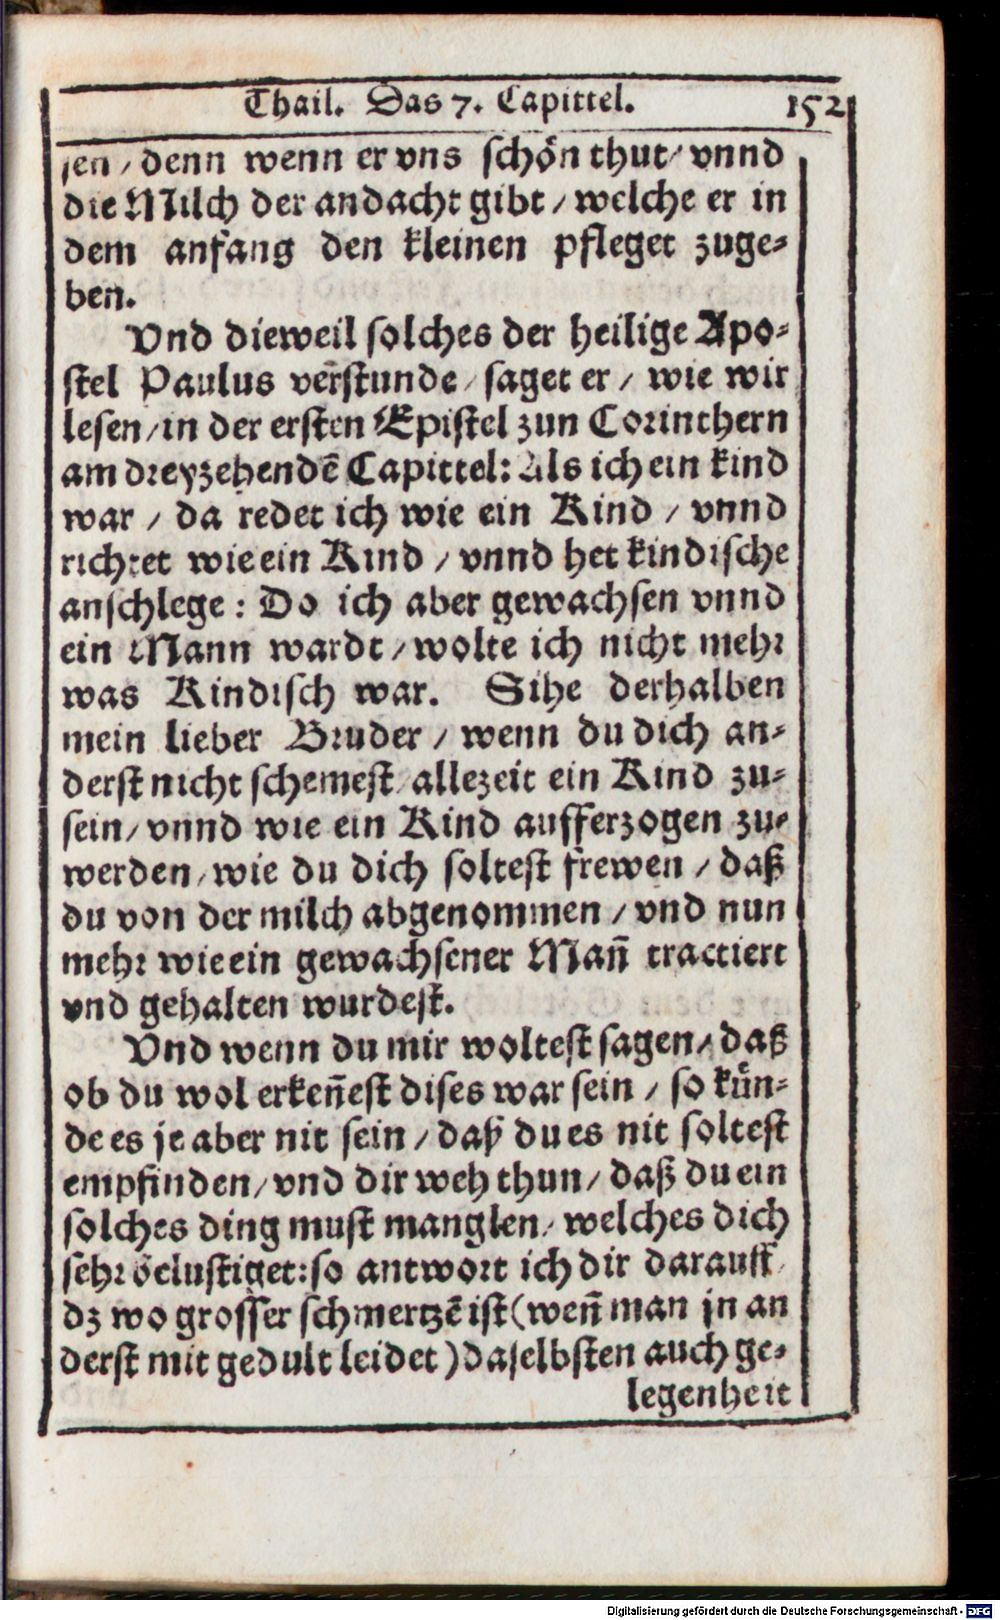 Thail. Das 7. Capittel. 152
sen / denn wenn er vns schön thut / vnnd
die Milch der andacht gibt / welche er in
dem anfang den kleinen pfleget zuge-
ben.
Vnd dieweil solches der heilige Apo-
stel Paulus verstunde / saget er / wie wir
lesen / in der ersten Epistel zun Corinthern
am dreyzehendẽ Capittel: Als ich ein kind
war / da redet ich wie ein Kind / vnnd
richtet wie ein Kind / vnnd het kindische
anschlege: Do ich aber gewachsen vnnd
ein Mann wardt / wolte ich nicht mehr
was Kindisch war. Sihe derhalben
mein lieber Bruder / wenn du dich an-
derst nicht schemest / allezeit ein Kind zu-
sein / vnnd wie ein Kind aufferzogen zu-
werden / wie du dich soltest frewen / daß
du von der milch abgenommen / vnd nun
mehr wie ein gewachsener Mañ tractiert
vnd gehalten wurdest.
Vnd wenn du mir woltest sagen / daß
ob du wol erkeñest dises war sein / so kün-
de es je aber nit sein / daß du es nit soltest
empfinden / vnd dir weh thun / daß du ein
solches ding must manglen / welches dich
sehr belustiget: so antwort ich dir darauff /
dz wo grosser schmertzẽ ist (weñ man jn an
derst mit gedult leidet) daselbsten auch ge-
legenheit
Digitalisierung gefördert durch die Deutsche Forschungsgemeinschaft - DFG